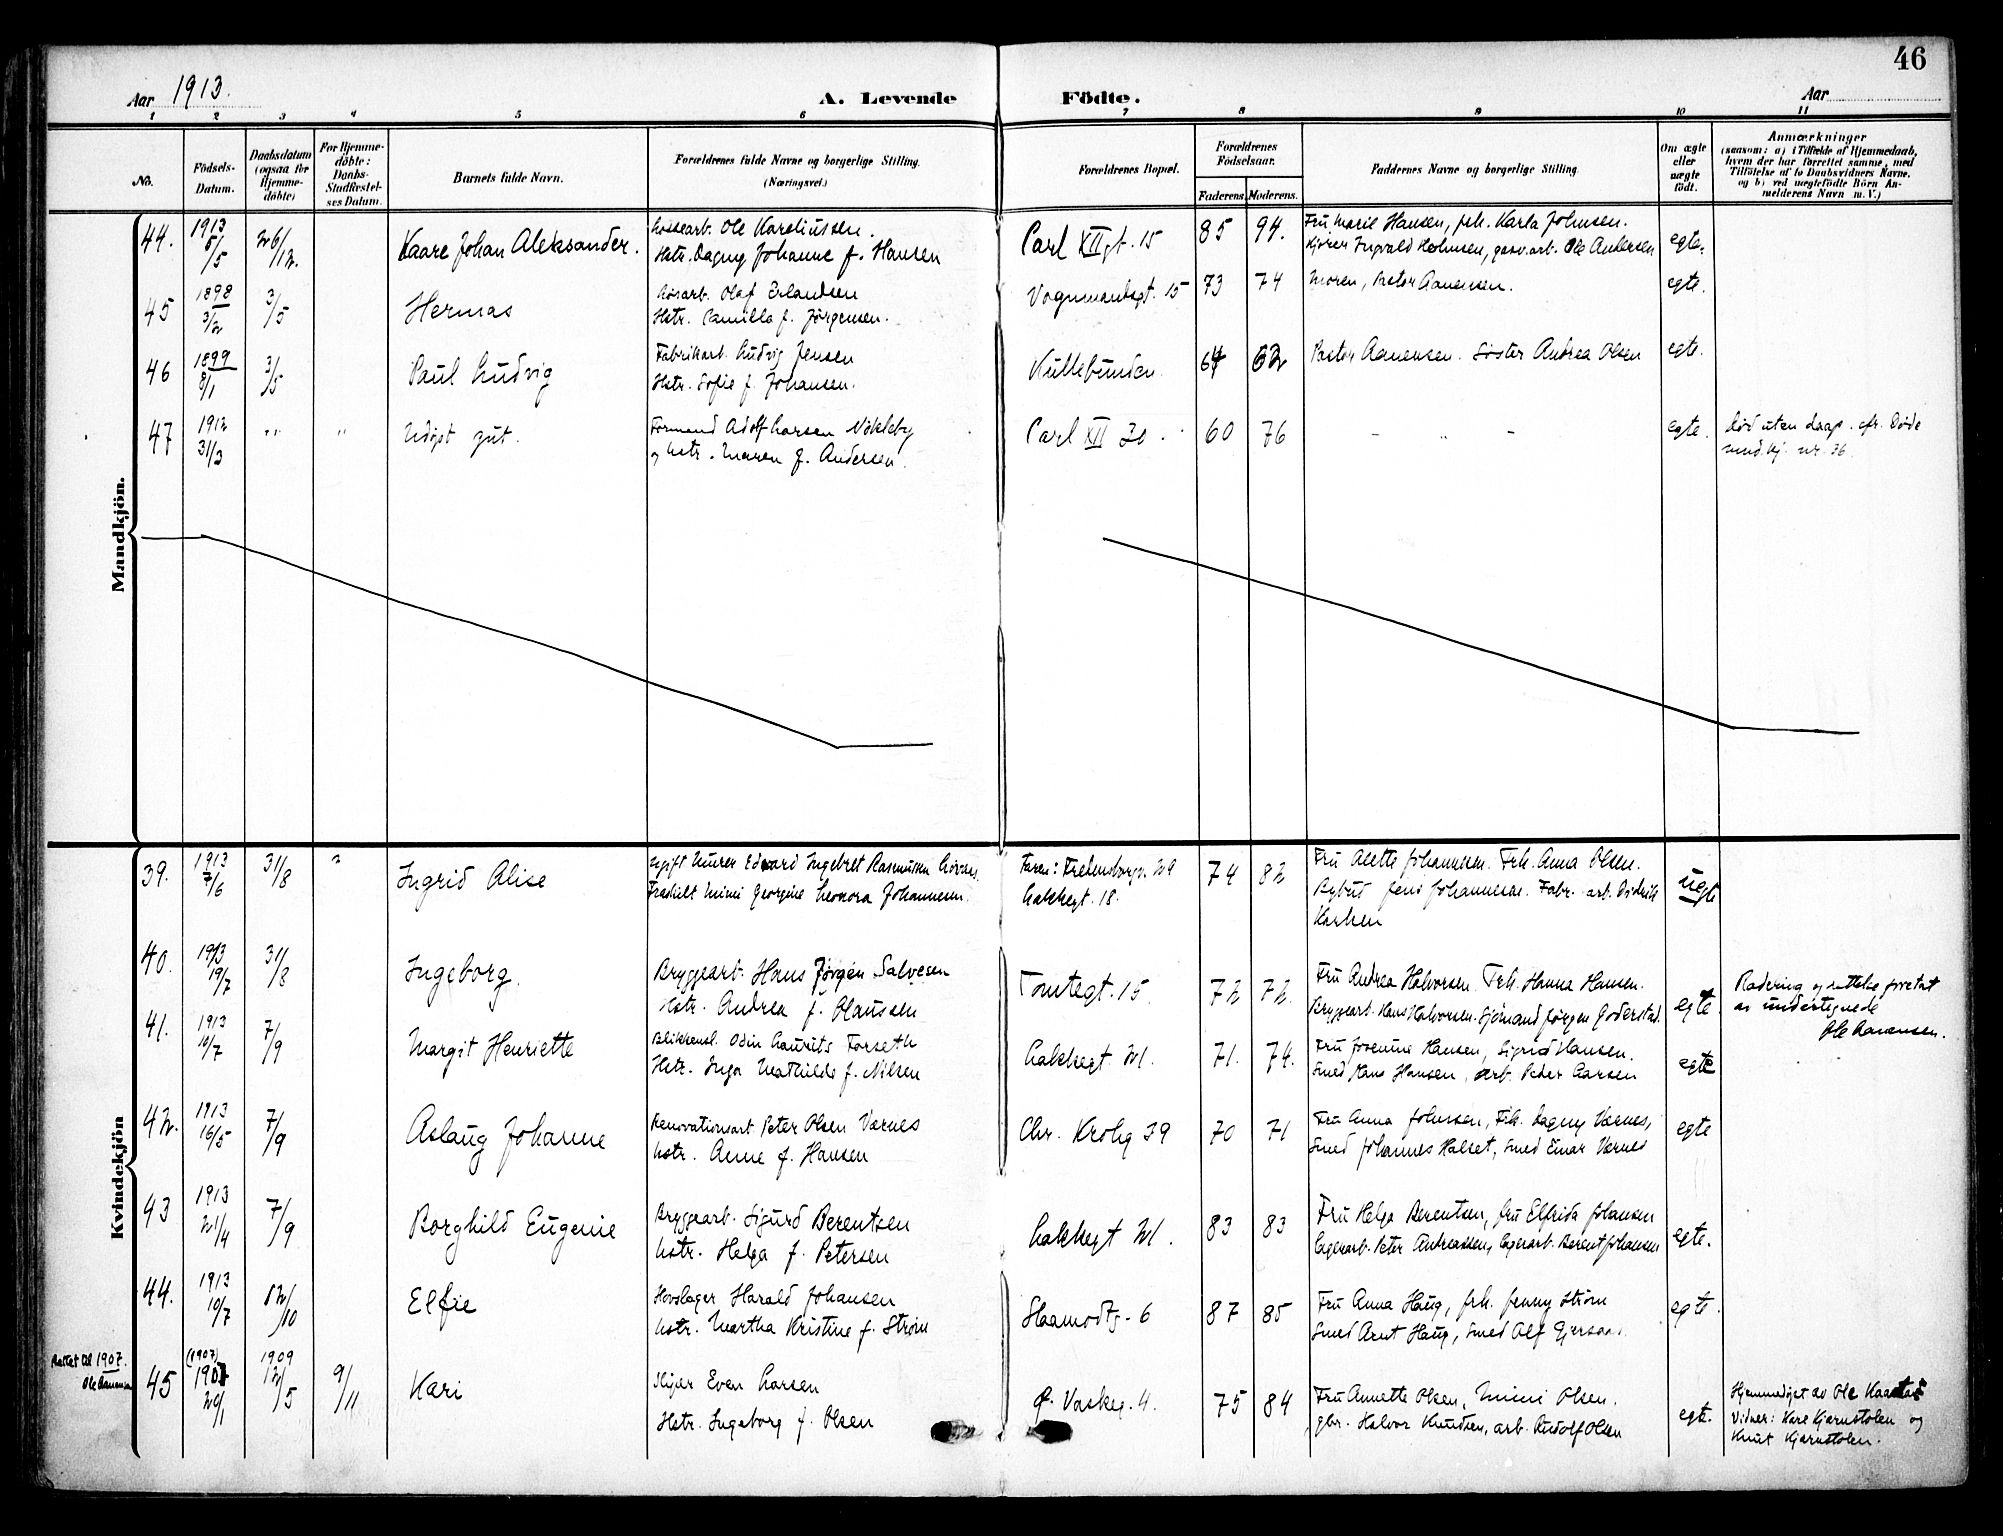 46
Aar 1913.
A. Levende Födte.
Aar
1 2 3 4 5 6 7 8 9 10 11
No.
Födsels-
Datum.
Daabsdatum
(ogsaa for
Hjemme-
døbte)
For Hjemme-
döbte:
Daabs-
Stadfæstel-
ses Datum.
Barnets fulde Navn.
Forældrenes fulde Navne og borgerlige Stilling.
(Næringsvei.)
Forældrenes Bopæl.
Forældrenes
Födselsaar.
Faderens. Moderens.
Faddernes Navne og borgerlige Stilling.
Om ægte
eller
uægte
født.
Anmærkninger
(saasom: a) i Tilfælde af Hjemmedaab,
hvem der har forrettet samme, med
Tilföielse af to Daabsvidners Navne.
og b) ved uægtefödte Börn An-
melderens Navn m. V.)
Mandkjön.
44. 1913 5/5 26/12. Kaare Johan Aleksander.
Ole Karoliussen.
Hstr. Dagny Johanne f. Hansen
Carl XII gt. 15 85 94.
Fru Marie Hansen, frk. Karla Johnsen.
Kjører Ingvald Holmsen, gasv.arb. Ole Andersen
egte.
45 1898 3/2 3/5 Hermas
Olaf Erlandsen
Hstr. Camilla f. Jørgensen.
Vognmandsgt. 15 73 74
Moren, Pastor Aanensen.
egte.
46 1899 8/1 3/5 Paul Ludvig
Fabrikarb. Ludvig Jensen
Hstr. Sofie f. Johansen.
64 62
Pastor Aanensen. Søster Andrea Olsen
egte.
47 1912 31/3 " " Udøpt gut.
Formand Adolf Larsen Nökleby
og hstr. Maren f. Andersen.
Carl XII 30. 60 76 - " -
egte.
Død uten daap. cfr. Døde
mndkj. nr. 36.
Kvindekjön
39. 1913 7/6 31/8 " Ingrid Alise
ugift Murer Edvard Ingebret Rasmussen
Fraskilt Mimi Georgine Leonora Johannesen.
Faren: Fredensborgv.
Lakkegt. 18.
74 82
Fru Anette Johannesen. Frk. Anna Olsen.
Bybud Jens Johannesen. Fabr. arb. Didrik
Karlsen
uegte
40. 1913 19/7 31/8 Ingeborg.
Bryggearb. Hans Jørgen Salvesen
Hstr. Andrea f. Olaussen
Tomtegt. 15. 72 72.
Fru Andrea Halvorsen. Frk. Hanna Hansen.
Bryggearb. Hans Halvorsen. Sjömand Jørgen Goderstad.
egte.
Radering og rettelse foretat
av undertegnede
Ole Aanensen.
41. 1913 10/7 7/9 Margit Henriette
Blikkensl. Odin Laurits Forseth
Hstr. Inga Mathilde f. Nilsen
Lakkegt. 21. 71. 74.
Fru Josefine Hansen, Sigrid Hansen.
Smed Hans Hansen, Arb. Peder Larsen
egte
42. 1913 16/5 7/9 Aslaug Johanne
Renovationsarb Peter Olsen Værnes
hstr. Anne f. Hansen
Chr. Krohg 39 70 71
Fru Anna Johnsen, Frk. Dagny Værnes,
Smed Johannes Halset, Smed Einar Værnes
egte
43 1913 21/4 7/9 Borghild Eugenie
Bryggearb. Sigurd Berentsen
hstr. Helga f. Petersen
Lakkegt 21. 83 83
Fru Helga Berentsen, fru Elfrida Johansen
Lagerarb. Peter Andreassen, Lagerarb. Berent Johansen
egte.
44. 1913 10/7 12/10 Elfie
Hovslager Harald Johansen
hstr. Martha Kristine f. Strøm
Skaamodtg. 6 87 85
Fru Anna Haug, frk. Jenny Strøm
Smed Arnt Haug, Smed Alf
egte.
Rettet til 1907.
Ole Aanensen
45 (1907) 1907 20/1 1909 12/5 9/11 Kari
Even Larsen
Hstr. Ingeborg f. Olsen
Vaskeg. 4. 75 84
Fru Annette Olsen, Mimi Olsen.
gbr. Halvor Knudsen, arb. Rudolf Olsen
egte.
Hjemmedøpt av Ole
Vidner: Kare Kjernstolen og
Knut Kjernstolen.